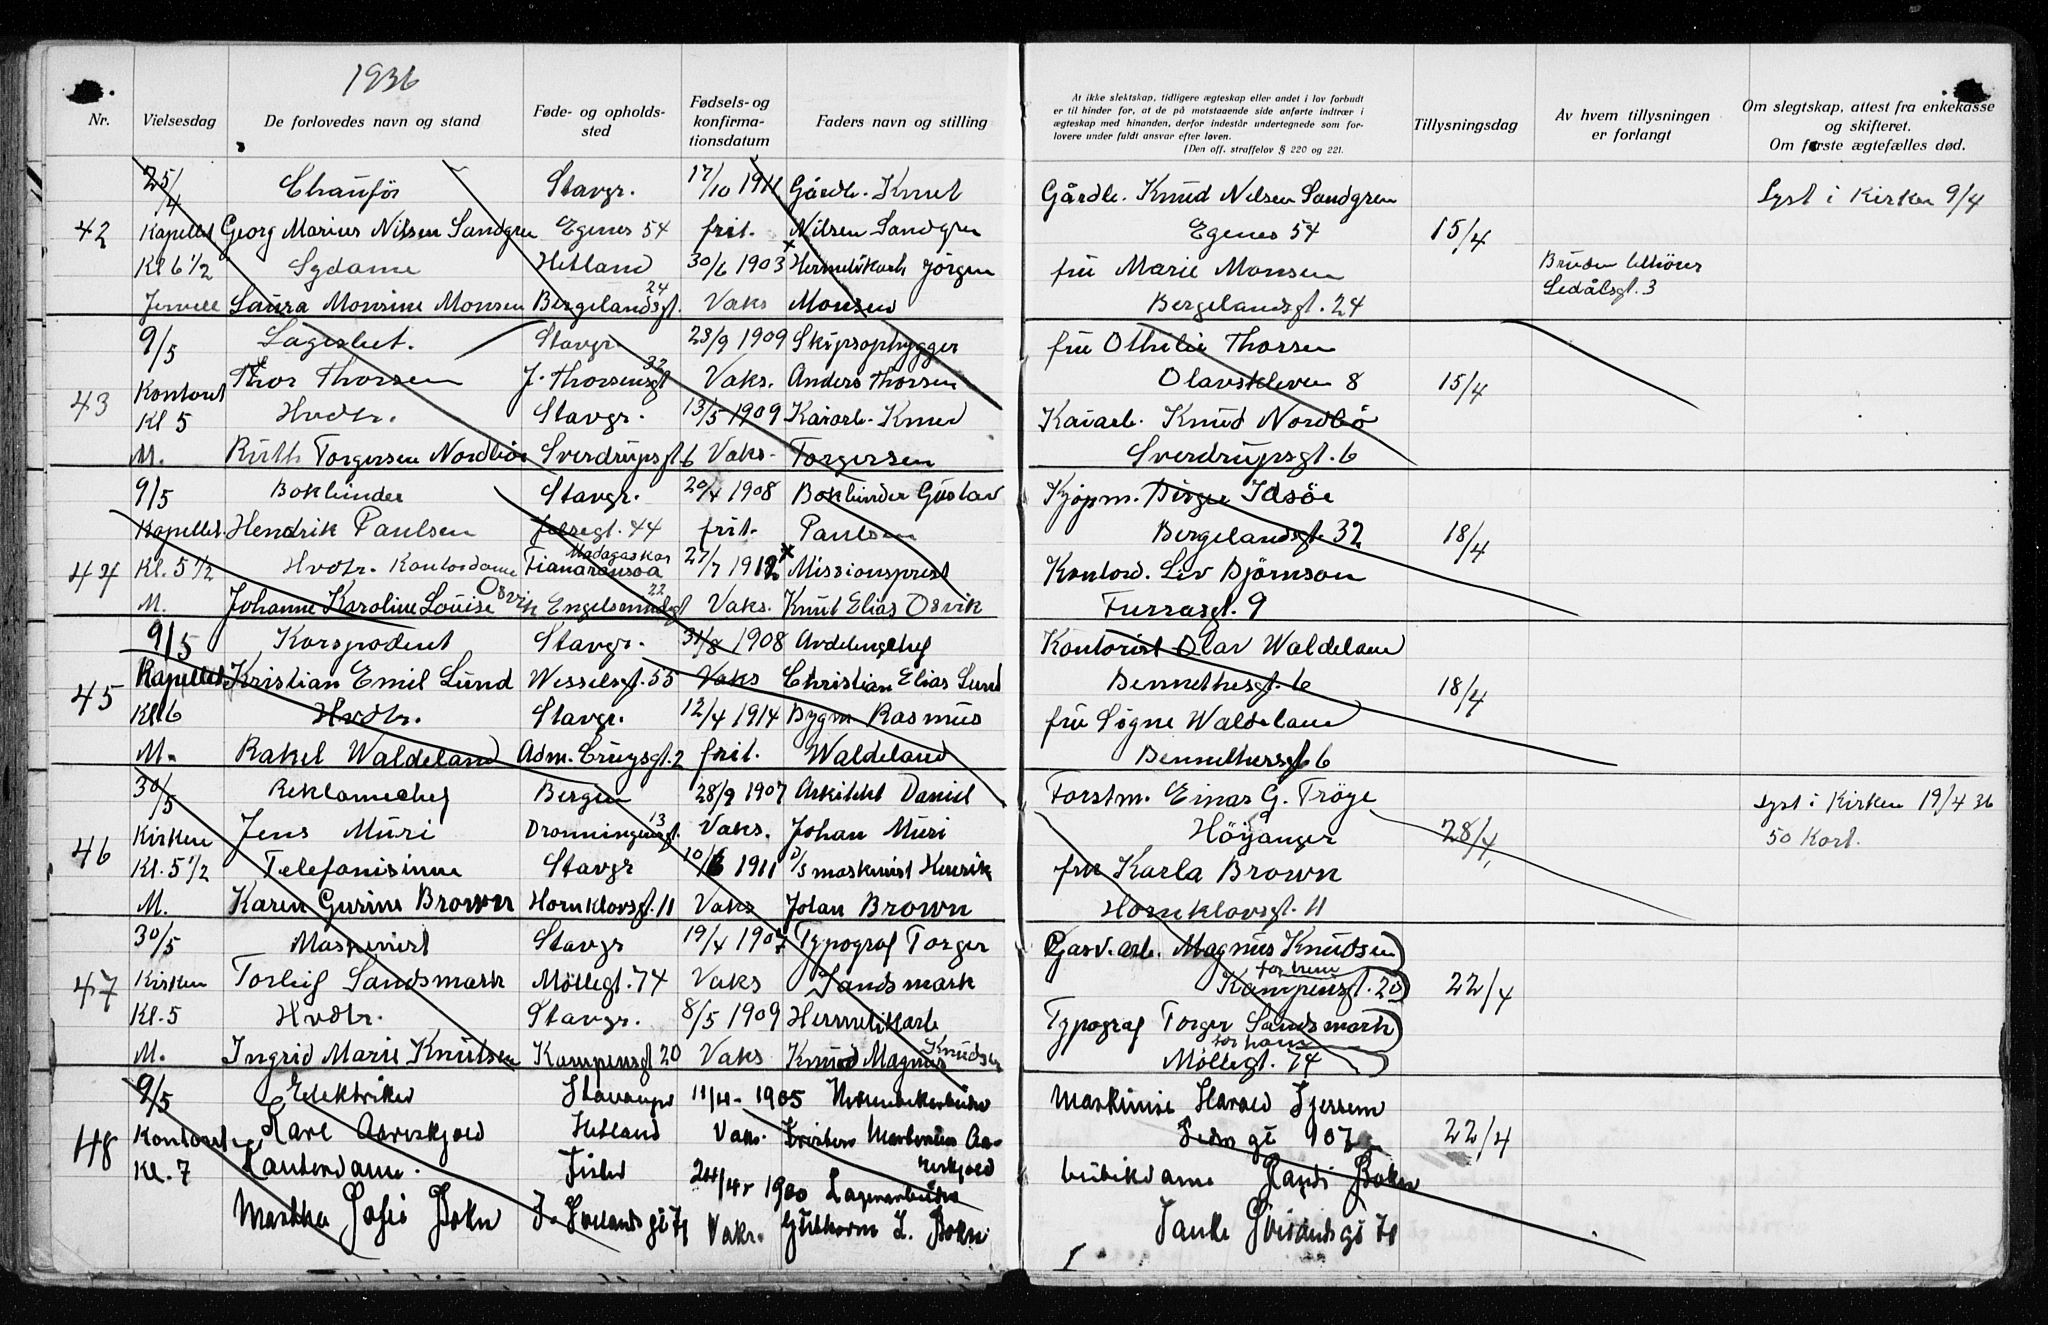 1936
Nr.
Vielsesdag
De forlovedes navn og stand
Føde- og opholds-
sted
Fødsels- og
konfirma-
tionsdatum
Faders navn og stilling
At ikke slektskap, tidligere ægteskap eller andet i lov forbudt
er til hinder for, at de på motstaaende side anførte indtrær i
ægteskap med hinanden, derfor indestår undertegnede som for-
lovere under fuldt ansvar efter loven.
(Den off. straffelov § 220 og 221.
Tillysningsdag
Av hvem tillysningen
er forlangt
Om slegtskap, attest fra enkekasse
og skifteret.
Om første ægtefælles død.
25/4 Chaufför Stavgr. 17/10 1911 Gårdb. Knut
42 Kapellet Georg Marius Nilsen Sandgren Egenes 54 frit. Nilsen Sandgren
Kl 6 1/2 Sydame Hetland 30/6 1903 Hermetikarb Jörgen
Laura Monsine Monsen Bergelandsgt. 24 Vaks Monsen
Gårdb. Knud Nilsen Sandgren
Egenes 54
fru Marie Monsen
Bergelandsgt. 24
15/4
Ledålsgt. 3
Lyst i Kirken 9/4
9/5 Lagerbet. Stavgr. 23/9 1909 Skipsophygger
43 Kontoret Thor Thorsen J. Thorsensgt 32 Vaks. Anders Thorsen
Kl 5 Hvdtr. Stavgr. 13/5 1909 Kaiarb. Knud
M. Ruth Torgersen Nordbö Sverdrupsgt 6 Vaks. Torgersen
fru Othilie Thorsen
Olavskleven 8
Kaiarb. Knud Nordbö
Sverdrupsgt. 6
15/4
9/5 Bokbinder Stavgr. 20/4 1908 Bokbinder Gustav
44 Kapellet. Hendrik Paulsen 44 frit. Paulsen
Kl. 5 1/2 Hvdtr. Kontordame Madagaskar 27/7 1912 Missionsprest
M. Johanne Karoline Louise Osvik 22 Vaks. Knut Elias Osvik
Kjöpm. Birger Idsöe
Bergelandsgt. 32
Kontord. Liv Björnson
Furrasgt. 9
18/4
9/5 Korspodent Stavgr. 31/8 1908 Avdelingchef
45 Kapellet Kristian Emil Lund Wesselsgt. 55 Vaks Christian Elias Lund
Kl 6 Hvdtr. Stavgr. 12/4 1914 Bygm Rasmus
M. Rakel Waldeland Adm. Cruysgt. 2 frit. Waldeland
Kontorist Olav Waldeland
Bennethesgt. 6
fru Signe Waldeland
Bennethersgt 6
18/4
30/5 Reklamechef Bergen 28/9 1907 Arkitekt Daniel
46 Kirken Jens Muri Dronningensgt. 13 Vaks. Johan Muri
Kl. 5 1/2 Telefonistinne Stavgr 10/6 1911 D/S maskinist Henrik
M. Karen Gurine Brown Hornklovsgt. 11 Vaks Johan Brown
Forstm. Einar G. Tröye
Höyanger
fru Karla Brown
Hornklovsgt. 11
28/4
Lyst i Kirken 19/4 36
50 Kort.
30/5 Maskinist Stavgr 19/4 1907 Typograf Torger
47 Kirken Torleif Sandsmark Möllegt. 74 Vaks Sandsmark
Kl. 5 Hvdtr. Stavgr. 8/5 1909 Hermetikkarb
M. Ingrid Marie Knutsen Kampensgt 20 Vaks Knud Magnus Knudsen
Gasv. arb. Magnus Knudsen
for henne
Kampensgt. 20
Typograf Torger Sandsmark
for ham
Möllegt. 74
22/4
9/5 Elektriker Stavanger 11/4 - 1905
48 Kontoret Karl Aareskjold Hetland Vaks. Kristen Martinius Aa-
reskjold
Kl. 7 Kontordame. 24/4 1900 Lagerarbeider
Martha Sofie Bokn Vaks. Guthorm L. Bokn
Maskinist Harald
107
Randi Bokn
22/4